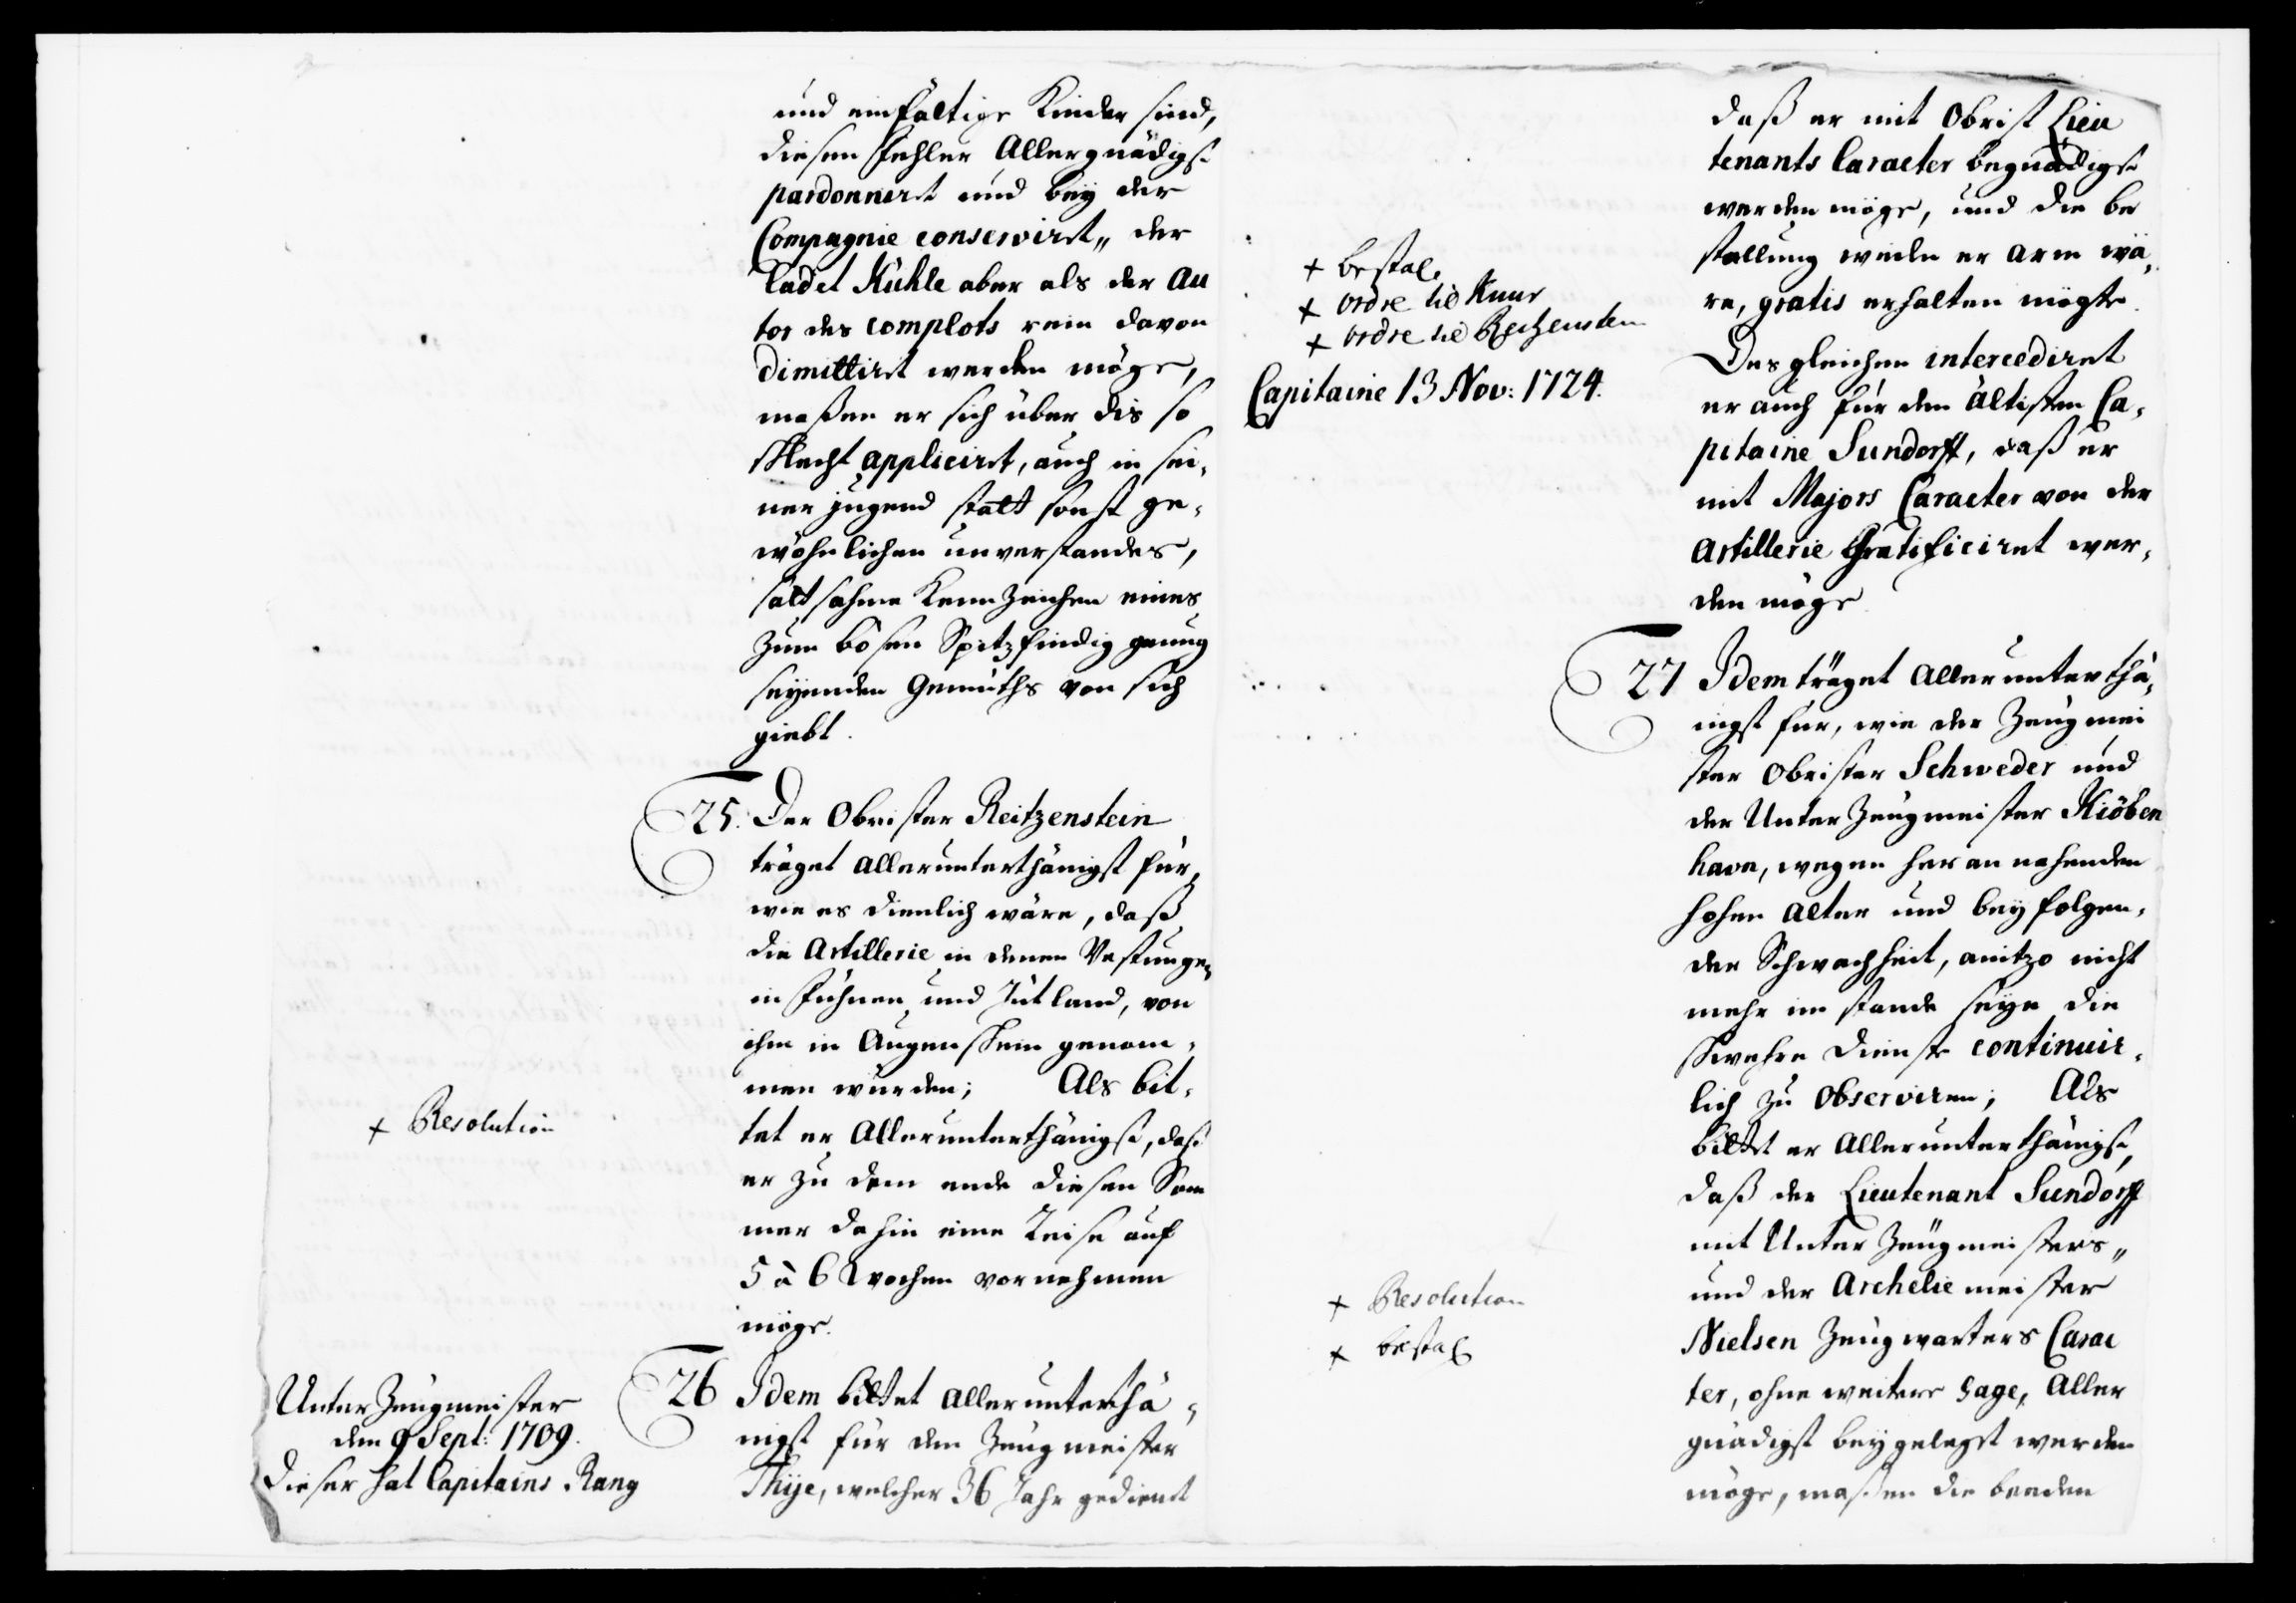 und einfältige Kinder sind,
diesen Fehler Allergnädigst
pardonniret und bey der
Compagnie conserviret„ der
Cadet Kühle aber als der Au
tor des complots rein davon
dimittiret werden möge,
maßen er sich über dis so
schlecht appliciret, auch in sei,
ner jugend statt sonst ge,
wöhnlichen unverstandes,
saltsahme Kennzeichen eines
zum bösen Spitzfindig genug
seyenden Gemüths von sich
giebt.
25. Der Obrister Reitzenstein
träget allerunterthänigst für,
wie es dienlich wäre, daß
die Artillerie in denen Vestungen
in Fühnen und Jütland, von
ihm in Augenschein genom,
men würden; Als bit,
tet er Allerunterthänigst, daß
+ Resolution
er zu dem ende diesen Som
mer dahin eine Reise auf
5 à 6 Wochen vornehmen
möge.
26 Idem bittet allerunterthä,
nigst für den Zeugmeister
Thye, welcher 36 Jahr gedienet
Unter Zeugmeister
den 9 Sept: 1709.
dieser hat Capitains Rang
daß er mit Obrist Lieu
tenants Caracter begnädigt
werden möge, und die be
stallung weilen er arm wä,
re, gratis erhalten mögte.
+ bestal.
+ ordre til Knur
+ ordre til Reitzenstein
Capitaine 13 Nov: 1724.
Desgleichen intercediret
er auch für den ältisten Ca,
pitaine Sundorff, daß er
mit Majors Caracter von der
Artillerie Gratificiret wer,
den möge.
27 Idem träget allerunterthä,
nigst für, wie der Zeugmei
ster Obrister Schweder und
der Unter Zeugmeister Kiöben
havn, wegen herannahenden
hohen alter und beyfolgen,
der Schwachheit, anitzo nicht
mehr im stande seye die
schwehre dienste continuir,
lich zu observiren; Als
bittet er allerunterthänigst,
daß der Lieutenant Sundorff
mit Unter Zeugmeisters„
und der Archeliemeister
Nielsen Zeugwarters Carac
ter, ohne weitere gage, Aller
gnädigst beygeleget werden
möge, maßen die beeden
+ Resolution
+ bestal